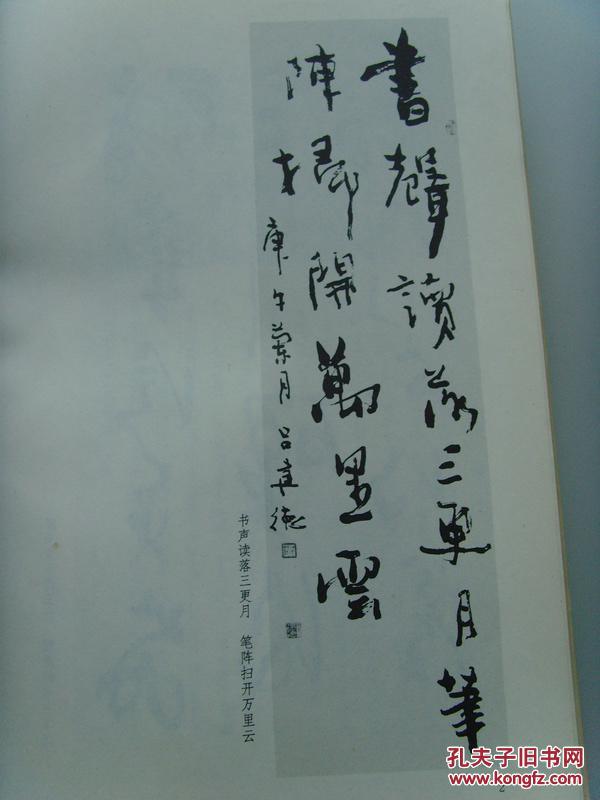 書聲讀落三更月筆
陣掃開萬里雲
庚午 月 呂建德
书声读落三更月 笔阵扫开万里云
2
孔夫子旧书网
www.kongfz.com